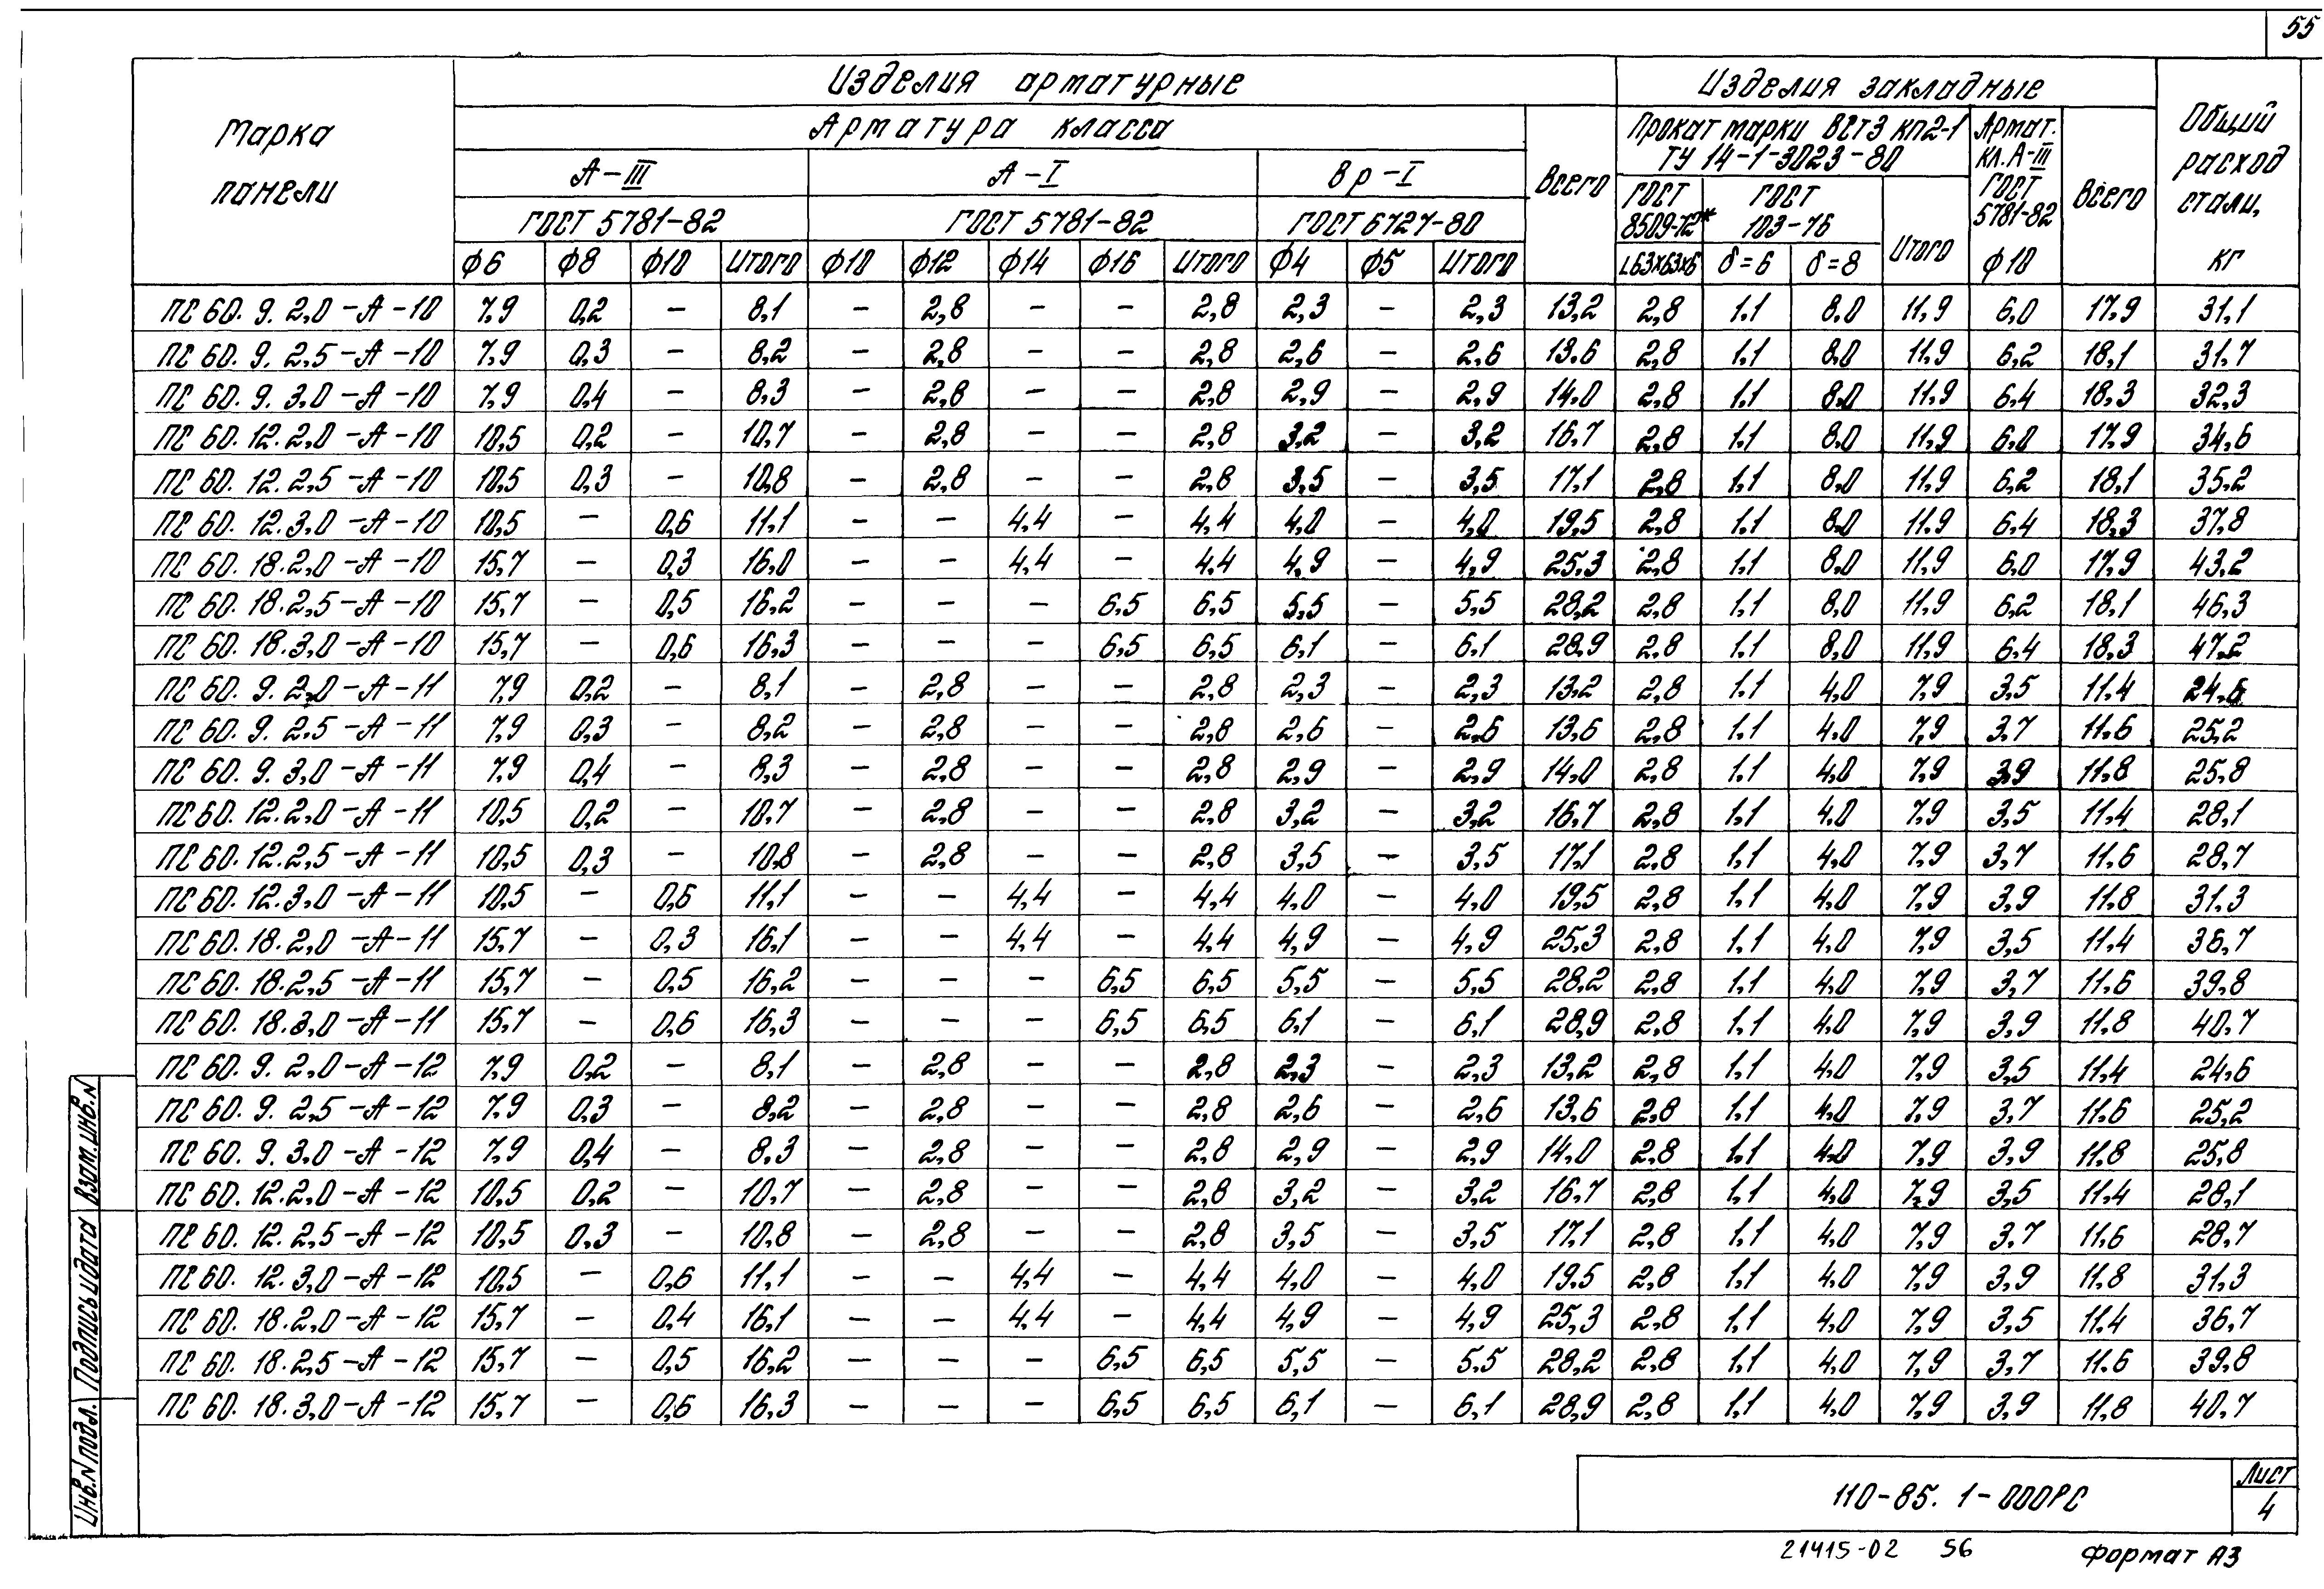 55
Марка панели
Изделия арматурные
Изделия закладные
Общий расход стали, кг
Арматура класса
Всего
Прокат марки ВСт3 кп2-1
ТУ 14-1-3023-80
Армат. кл. А-III ГОСТ 5781-82
Всего
А-III
А-I
Вр-I
ГОСТ 8509-72*
ГОСТ 103-76
Итого
ГОСТ 5781-82
ГОСТ 5781-82
ГОСТ 6727-80
ф6 ф8 ф10 Итого ф10 ф12 ф14 ф16 Итого ф4 ф5 Итого L63х63х6 δ=6 δ=8 ф10
ПС 60. 9. 2,0 -А -10 7,9 0,2 — 8,1 — 2,8 — — 2,8 2,3 — 2,3 13,2 2,8 1.1 8.0 11,9 6,0 17,9 31,1
ПС 60. 9. 2,5 -А -10 7,9 0,3 — 8,2 — 2,8 — — 2,8 2,6 — 2,6 13,6 2,8 1.1 8.0 11,9 6,2 18,1 31,7
ПС 60. 9. 3,0 -А -10 7,9 0,4 — 8,3 — 2,8 — — 2,8 2,9 — 2,9 14,0 2,8 1.1 8,0 11,9 6,4 18,3 32,3
ПС 60. 12. 2,0 -А -10 10,5 0,2 — 10,7 — 2,8 — — 2,8 3,2 — 3,2 16,7 2,8 1.1 8,0 11,9 6,0 17,9 34,6
ПС 60. 12. 2,5 -А -10 10,5 0,3 — 10,8 — 2,8 — — 2,8 3,5 — 3,5 17,1 2,8 1.1 8,0 11,9 6,2 18,1 35,2
ПС 60. 12. 3,0 -А -10 10,5 — 0,6 11,1 — — 4,4 — 4,4 4,0 — 4,0 19,5 2,8 1.1 8,0 11,9 6,4 18,3 37,8
ПС 60. 18. 2,0 -А -10 15,7 — 0,3 16,0 — — 4,4 — 4,4 4,9 — 4,9 25,3 2,8 1,1 8,0 11,9 6,0 17,9 43,2
ПС 60. 18. 2,5 -А -10 15,7 — 0,5 16,2 — — — 6,5 6,5 5,5 — 5,5 28,2 2,8 1,1 8,0 11,9 6,2 18,1 46,3
ПС 60. 18. 3,0 -А -10 15,7 — 0,6 16,3 — — — 6,5 6,5 6,1 — 6,1 28,9 2,8 1,1 8,0 11,9 6,4 18,3 47,2
ПС 60. 9. 2,0 -А -11 7,9 0,2 — 8,1 — 2,8 — — 2,8 2,3 — 2,3 13,2 2,8 1,1 4,0 7,9 3,5 11,4 24,6
ПС 60. 9. 2,5 -А -11 7,9 0,3 — 8,2 — 2,8 — — 2,8 2,6 — 2,6 13,6 2,8 1,1 4,0 7,9 3,7 11,6 25,2
ПС 60. 9. 3,0 -А -11 7,9 0,4 — 8,3 — 2,8 — — 2,8 2,9 — 2,9 14,0 2,8 1,1 4,0 7,9 3,9 11,8 25,8
ПС 60. 12. 2,0 -А -11 10,5 0,2 — 10,7 — 2,8 — — 2,8 3,2 — 3,2 16,7 2,8 1,1 4,0 7,9 3,5 11,4 28,1
ПС 60. 12. 2,5 -А -11 10,5 0,3 — 10,8 — 2,8 — — 2,8 3,5 — 3,5 17,1 2,8 1,1 4,0 7,9 3,7 11,6 28,7
ПС 60. 12. 3,0 -А -11 10,5 — 0,6 11,1 — — 4,4 — 4,4 4,0 — 4,0 19,5 2,8 1,1 4,0 7,9 3,9 11,8 31,3
ПС 60. 18. 2,0 -А -11 15,7 — 0,3 16,1 — — 4,4 — 4,4 4,9 — 4,9 25,3 2,8 1,1 4,0 7,9 3,5 11,4 36,7
ПС 60. 18. 2,5 -А -11 15,7 — 0,5 16,2 — — — 6,5 6,5 5,5 — 5,5 28,2 2,8 1,1 4,0 7,9 3,7 11,6 39,8
ПС 60. 18. 3,0 -А -11 15,7 — 0,6 16,3 — — — 6,5 6,5 6,1 — 6,1 28,9 2,8 1,1 4,0 7,9 3,9 11,8 40,7
ПС 60. 9. 2,0 -А -12 7,9 0,2 — 8,1 — 2,8 — — 2,8 2,3 — 2,3 13,2 2,8 1,1 4,0 7,9 3,5 11,4 24,6
ПС 60. 9. 2,5 -А -12 7,9 0,3 — 8,2 — 2,8 — — 2,8 2,6 — 2,6 13,6 2,8 1,1 4,0 7,9 3,7 11,6 25,2
ПС 60. 9. 3,0 -А -12 7,9 0,4 — 8,3 — 2,8 — — 2,8 2,9 — 2,9 14,0 2,8 1,1 4,0 7,9 3,9 11,8 25,8
ПС 60. 12. 2,0 -А -12 10,5 0,2 — 10,7 — 2,8 — — 2,8 3,2 — 3,2 16,7 2,8 1,1 4,0 7,9 3,5 11,4 28,1
ПС 60. 12. 2,5 -А -12 10,5 0,3 — 10,8 — 2,8 — — 2,8 3,5 — 3,5 17,1 2,8 1,1 4,0 7,9 3,7 11,6 28,7
ПС 60. 12. 3,0 -А -12 10,5 — 0,6 11,1 — — 4,4 — 4,4 4,0 — 4,0 19,5 2,8 1,1 4,0 7,9 3,9 11,8 31,3
ПС 60. 18. 2,0 -А -12 15,7 — 0,4 16,1 — — 4,4 — 4,4 4,9 — 4,9 25,3 2,8 1,1 4,0 7,9 3,5 11,4 36,7
ПС 60. 18. 2,5 -А -12 15,7 — 0,5 16,2 — — — 6,5 6,5 5,5 — 5,5 28,2 2,8 1,1 4,0 7,9 3,7 11,6 39,8
ПС 60. 18. 3,0 -А -12 15,7 — 0,6 16,3 — — — 6,5 6,5 6,1 — 6,1 28,9 2,8 1,1 4,0 7,9 3,9 11,8 40,7
Инв.N подл. Подпись и дата Взам.инв.N
110-85. 1-000РС
Лист
4
21415-02 56
Формат А3